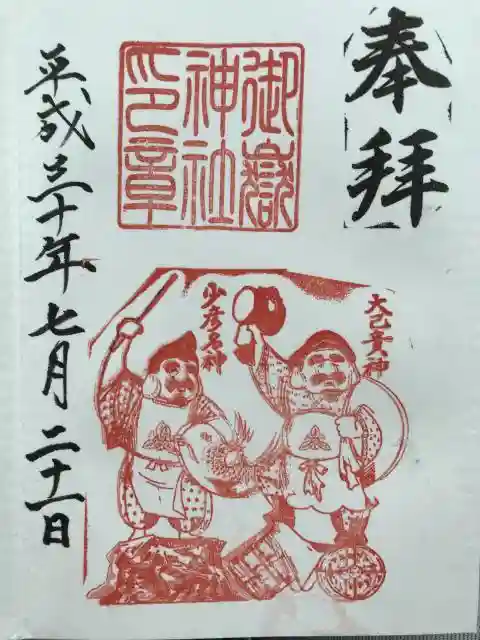 奉拝
御嶽
神社
印章
大己貴神
少彦名神
平成三十年七月二十一日